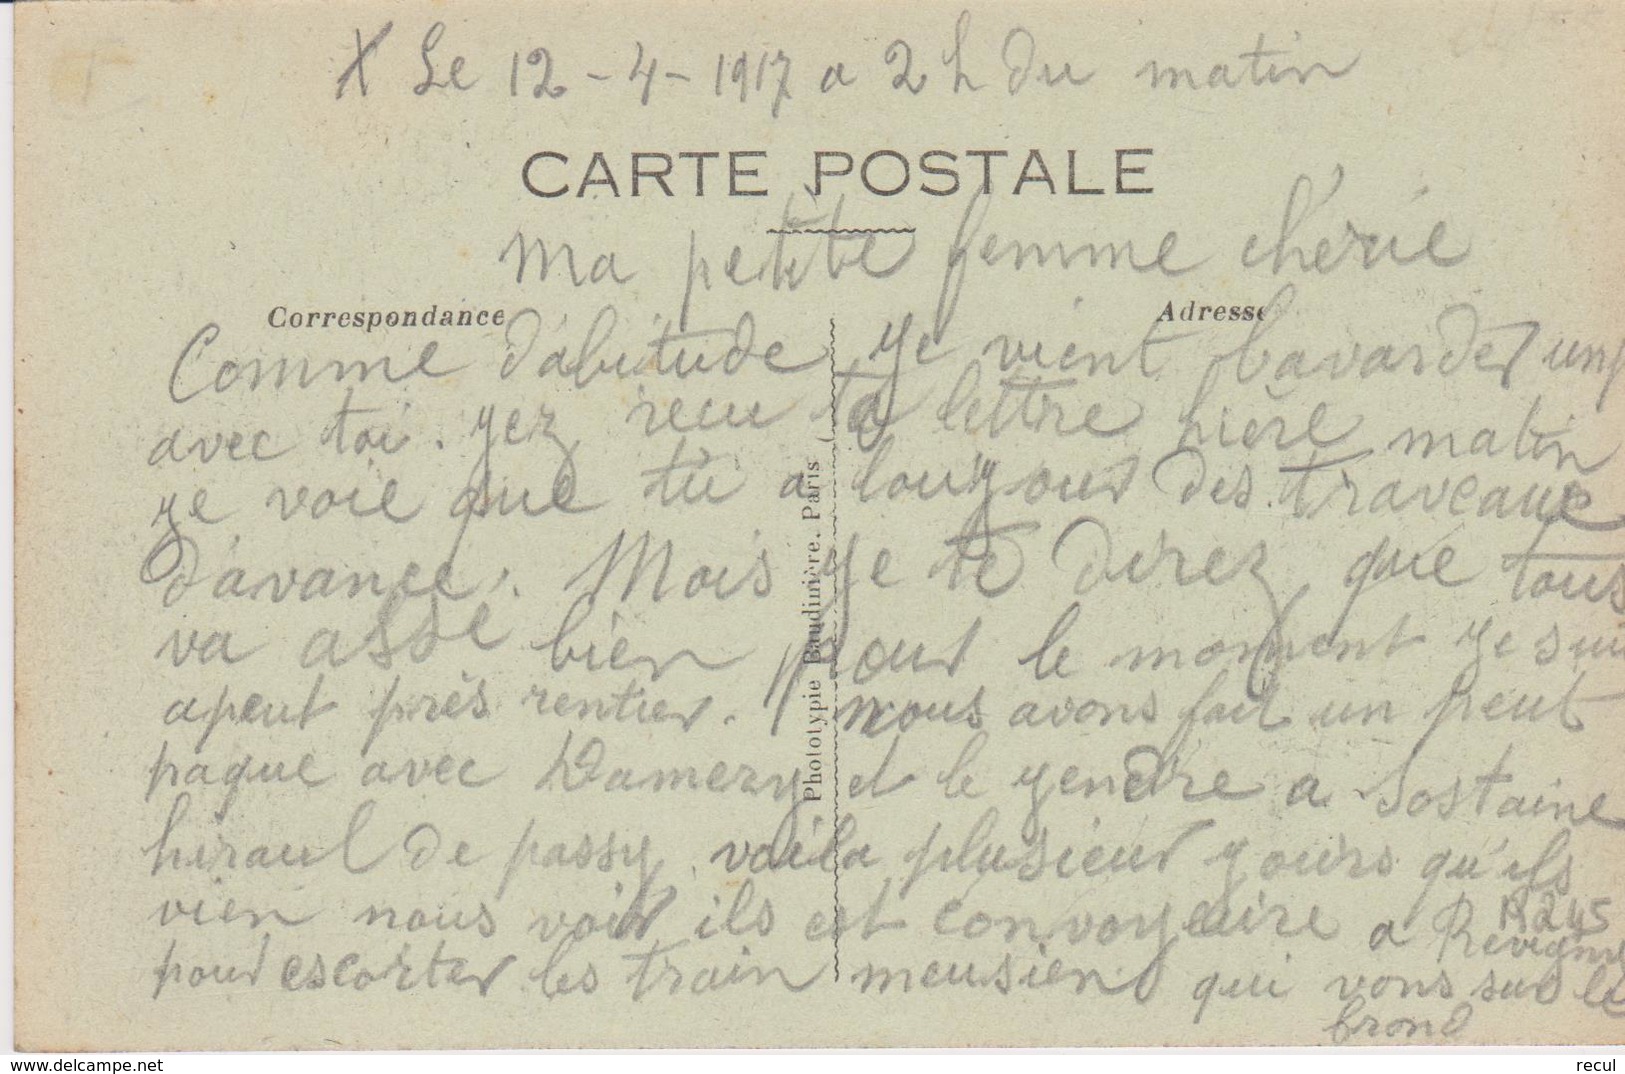 X Le 12-4-1917 a 2 h du matin
CARTE POSTALE
Ma petite femme chérie
Correspondance
Adresse
Comme d'abitude ye vient bavarder un p
avec toi. yez recu ta lettre hière matin
ye voie que tu a touyour des traveaue
d'avance. Mais ye te direz que tous
va assé bien pour le moment ye sui
apeut près rentier. nous avons fait un peut
paque avec Damery et le yendre a Sostaine
hiraul de passy voila plusieur yours qu'ils
vien nous voir ils est convoyeuire a Revigny
pour escorter les train meusien qui vons sur le
frond
R245
Phototypie Baudinière, Paris
www.delcampe.net
recul